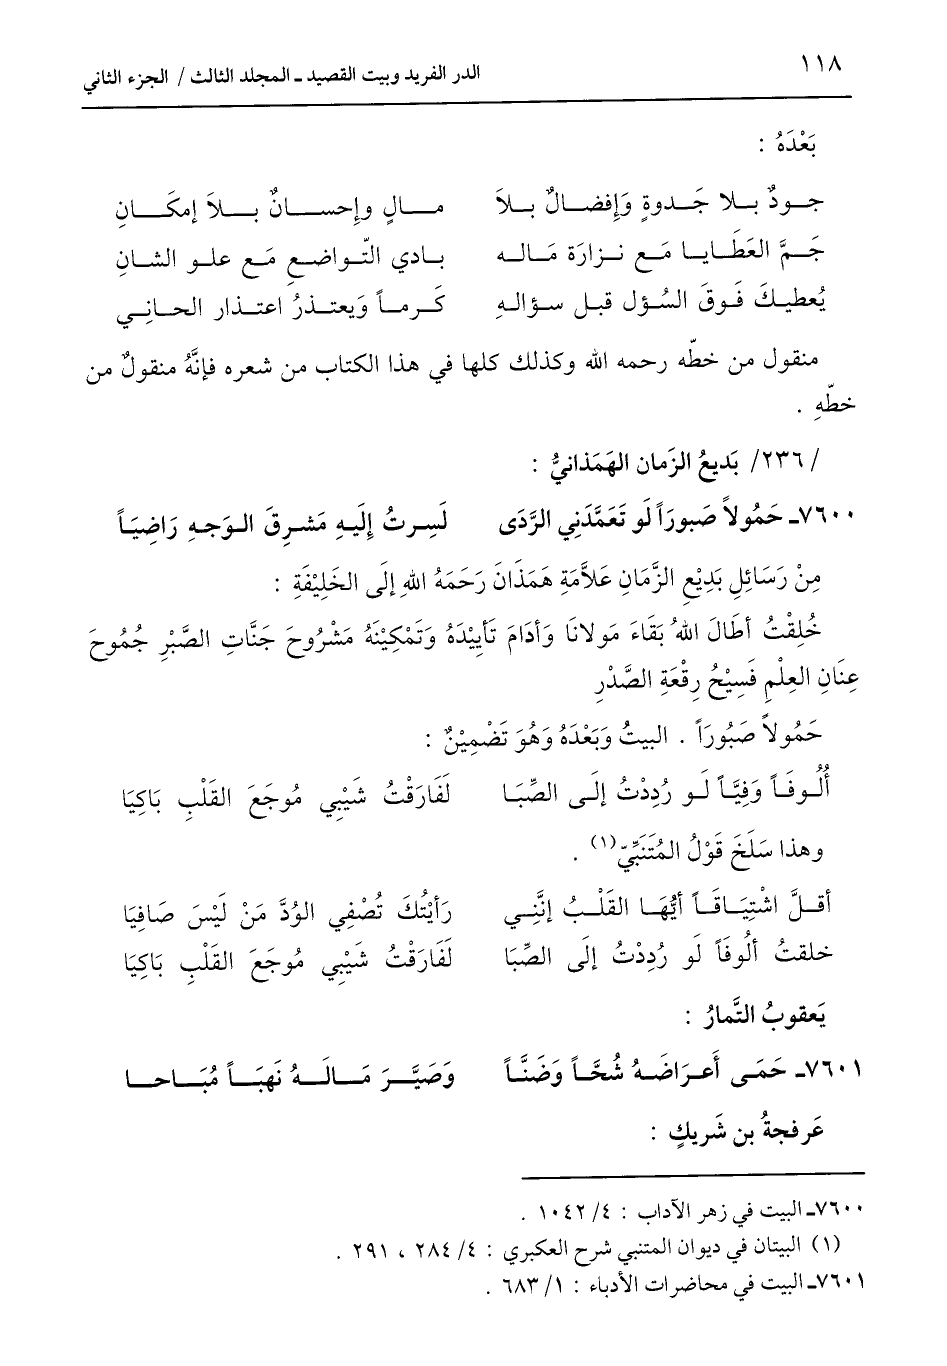 ١١٨ الدر الفريد وبيت القصيد ـ المجلد الثالث / الجزء الثاني
بَعْدَهُ :
جــودٌ بــلا جَــدوةٍ وَإفضــالٌ بــلاَ مــــالٍ وإحســـانٌ بـــلاَ إمكَــــانِ
جَــمَّ العَطَــايــا مَــع نــزارَة مَــالــه بــادي التّــواضــعِ مَــع علــو الشــانِ
يُعطيــكَ فَــوقَ السُــؤل قبــل ســؤالــهِ كَــرمــاً وَيعتــذرُ اعتــذار الحــانِــي
منقول من خطّه رحمه الله وكذلك كلها في هذا الكتاب من شعره فإنَّهُ منقولٌ من
خطّهِ .
/ ٢٣٦/ بَديعُ الزَمان الهَمَذانيُّ :
٧٦٠٠ـ حَمُولاً صَبورَاً لَو تَعَمَّدَنِي الرَّدَى لَسِرتُ إِلَيهِ مَشرِقَ الوَجهِ رَاضِيَاً
مِنْ رَسَائِلِ بَدِيْعِ الزَّمَانِ عَلاَّمَةِ هَمَذَانَ رَحَمَهُ اللهِ إلَى الخَلِيْفَةِ :
خُلِقْتُ أطَالَ اللهُ بَقَاءَ مَولانَا وَأدَامَ تَأيِيْدَهُ وَتَمْكِيْنَهُ مَشْرُوحَ جَنَّاتِ الصَّبْرِ جُمُوحَ
عِنَانِ العِلْمِ فَسِيْحُ رِقْعَةِ الصَّدْرِ
حَمُولاً صَبُورَاً . البيتُ وَبَعْدَهُ وَهُوَ تَضْمِيْنٌ :
أُلُــوفَــاً وَفِيَّــاً لَــو رُدِدْتُ إلَــى الصِّبَــا لَفَارَقْتُ شَيْبِي مُوجَعَ القَلْبِ بَاكِيَا
وهذا سَلَخَ قَوْلُ المُتَنَبِّيّ(١) .
أقــلَّ اشْتِيَــاقَــاً أيُّهَــا القَلْــبُ إنَّنِــي رَأيْتُكَ تُصْفِي الوُدَّ مَنْ لَيْسَ صَافِيَا
خلقتُ ألُوفَاً لَو رُدِدْتُ إلَى الصِّبَا لَفَارَقْتُ شَيْبِي مُوجَعَ القَلْبِ بَاكِيَا
يَعقوبُ التَّمارُ :
٧٦٠١ـ حَمَى أَعـرَاضَـهُ شُحَّـاً وَضَنَّـاً وَصَيَّـــرَ مَـــالَـــهُ نَهبَـــاً مُبَـــاحـــا
عَرفجةُ بن شَريكٍ :
٧٦٠٠ـ البيت في زهر الآداب : ٤/ ١٠٤٢ .
(١) البيتان في ديوان المتنبي شرح العكبري : ٤/ ٢٨٤ ، ٢٩١ .
٧٦٠١ـ البيت في محاضرات الأدباء : ١/ ٦٨٣ .